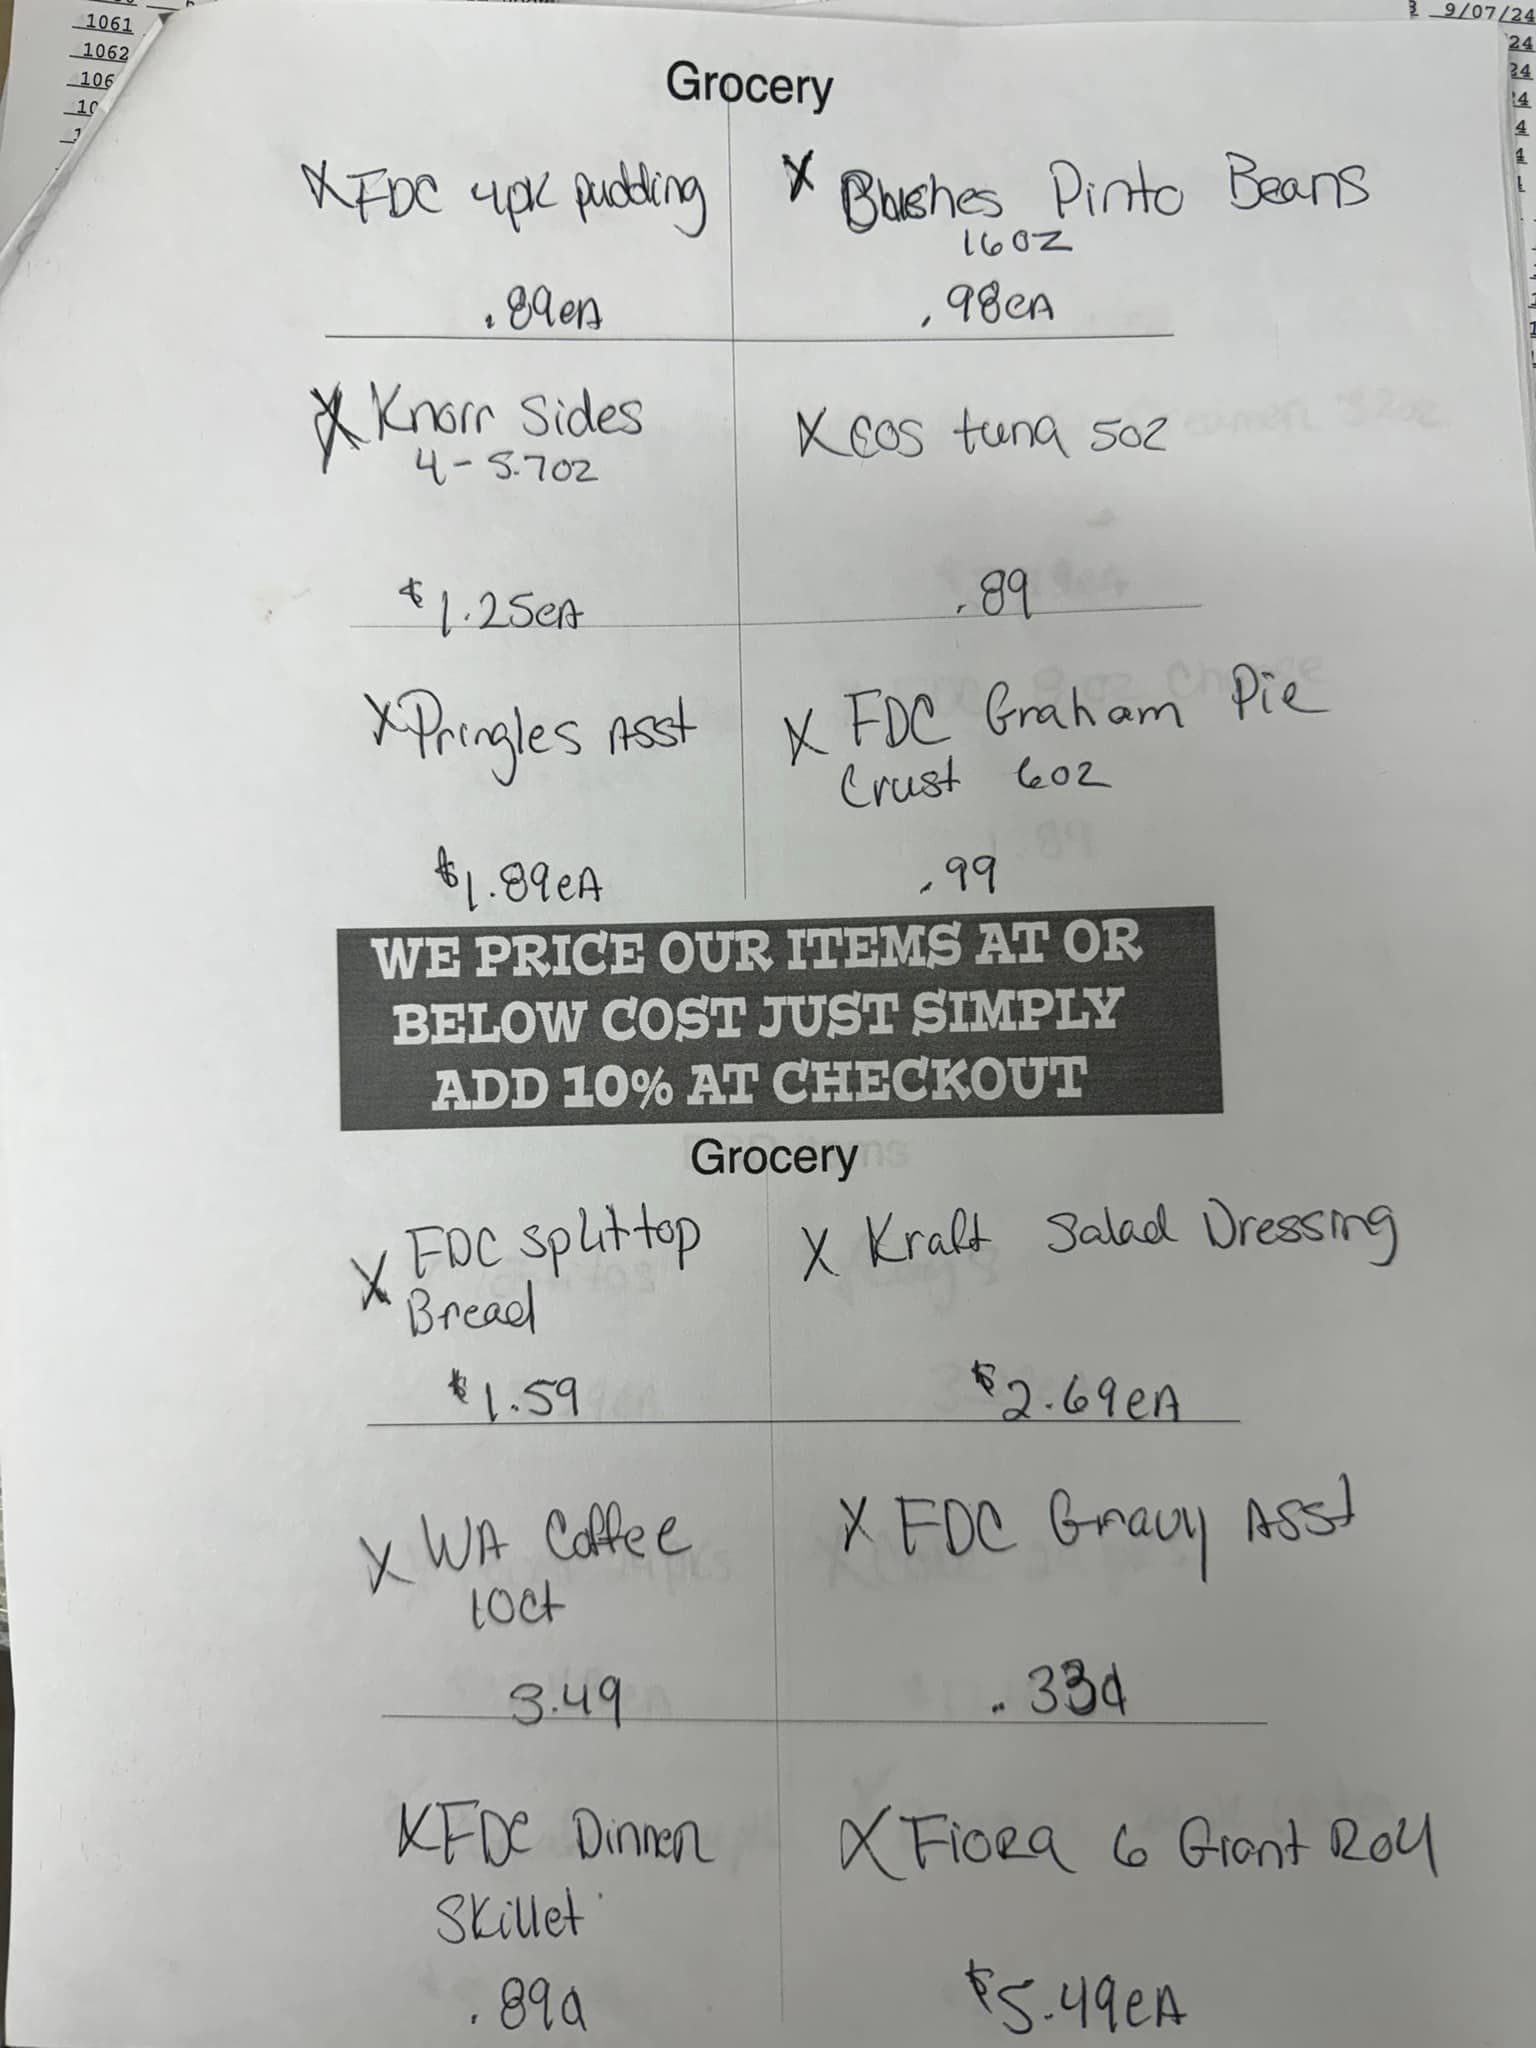 1061
1062
106
10
1
9/07/24
24
24
4
4
4
Grocery
X FDC 4pk pudding
.89eA
X Bushes Pinto Beans
16oz
.98eA
X Knorr Sides
4-5.7oz
$1.25eA
X COS tuna 5oz
.89
X Pringles Asst
$1.89eA
X FDC Graham Pie
Crust 6oz
.99
WE PRICE OUR ITEMS AT OR
BELOW COST JUST SIMPLY
ADD 10% AT CHECKOUT
Grocery
X FDC Split top
Bread
$1.59
X Kraft Salad Dressing
$2.69eA
X WA Coffee
10ct
3.49
X FDC Gravy Asst
.33¢
X FDC Dinner
Skillet
.89¢
X Fiora 6 Giant Roll
$5.49eA